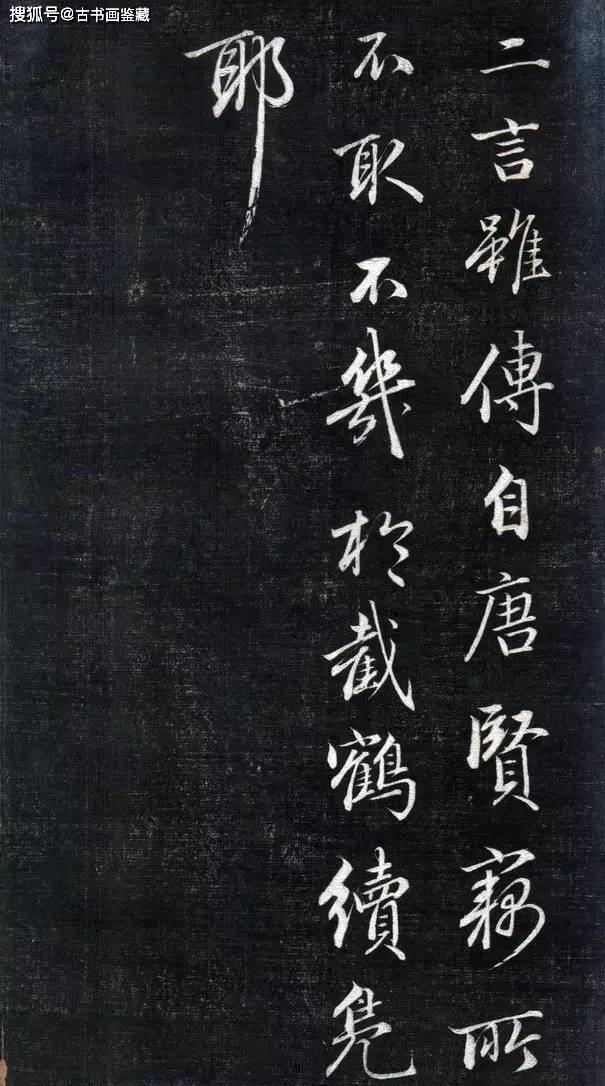 搜狐号@古书画鉴藏
二言雖傳自唐賢竊所
不取不幾於截鶴續鳧
耶